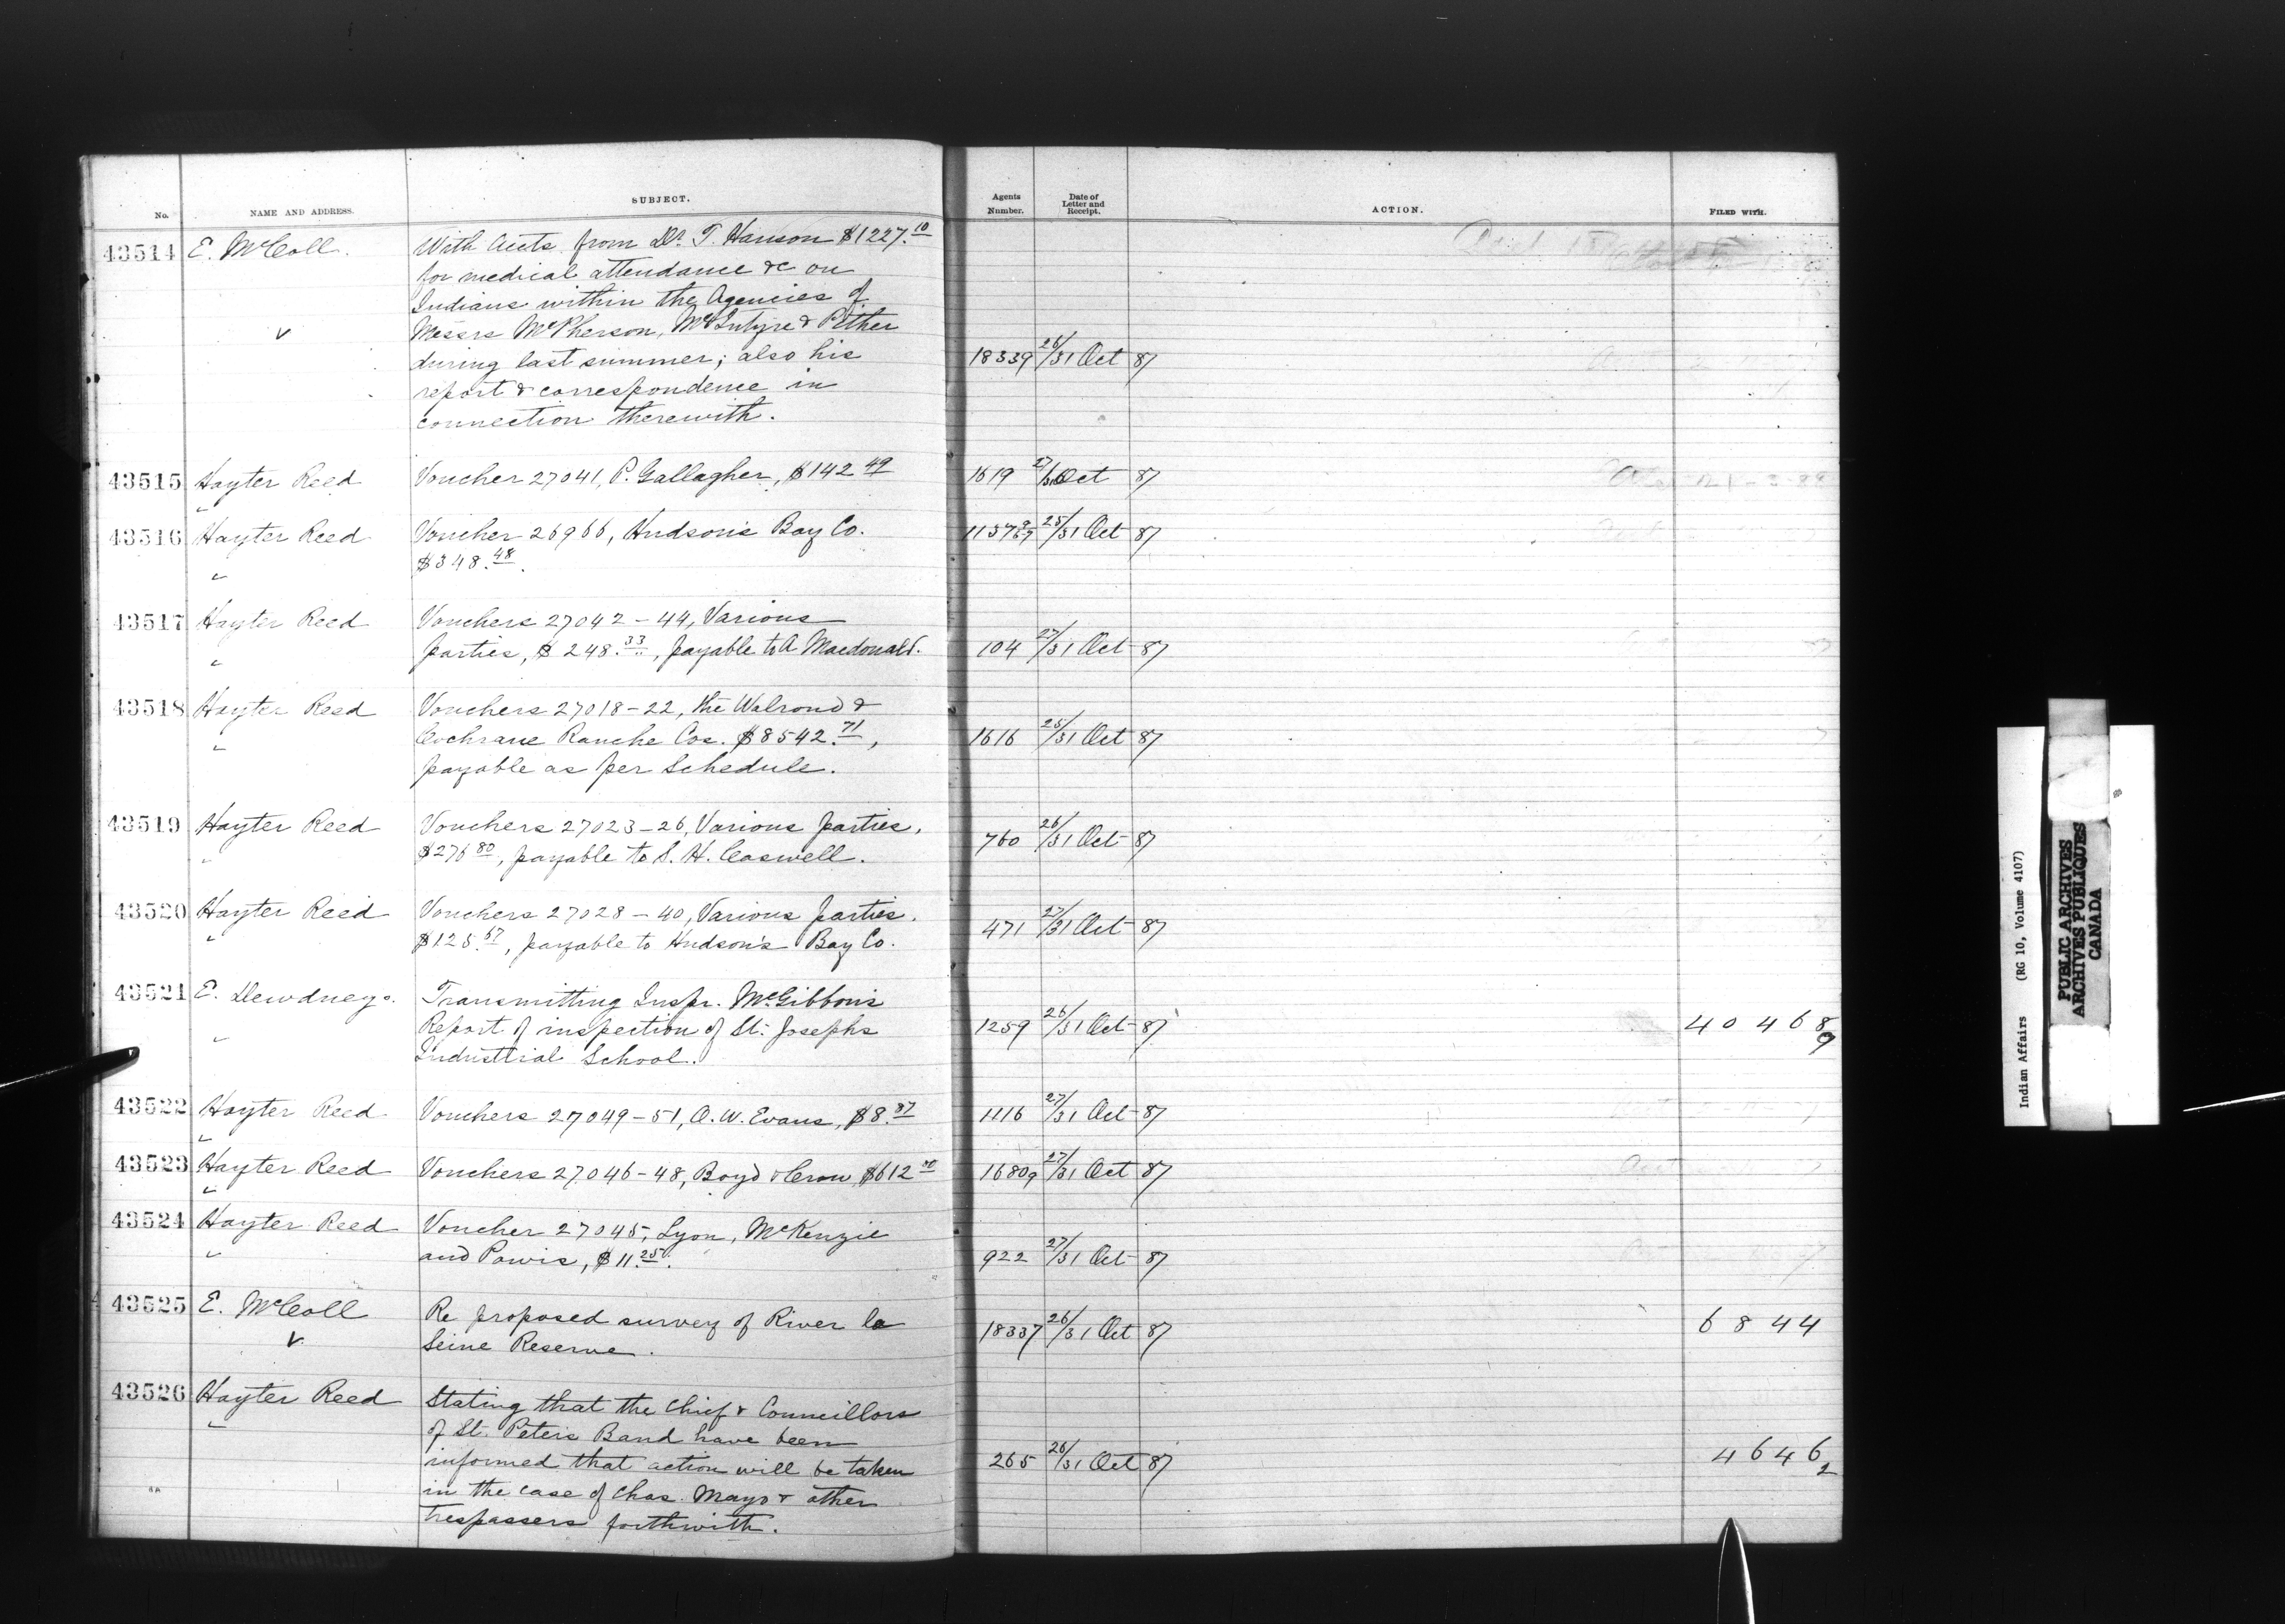 No. NAME AND ADDRESS. SUBJECT. Agents Number. Date of Letter and Receipt. ACTION. FILED WITH.
43514 E. McColl. With Accts from Dr. T. Hanson $1227.10
for medical attendance &c on
Indians within the Agencies of
Messrs McPherson, McIntyre & Pither
during last summer; also his 18339 26/31 Oct 87
report & correspondence in
connection therewith.
43515 Hayter Reed Voucher 27041, P. Gallagher, $142 49 1619 27/31 Oct 87
43516 Hayter Reed Voucher 26966, Hudson's Bay Co. 25/31 Oct 87
" $348.48.
43517 Hayter Reed Vouchers 27042-44, Various
" parties, $248.33, payable to A Macdonald. 104 27/31 Oct 87
43518 Hayter Reed Vouchers 27018-22, the Walrond &
" Cochrane Ranche Cos. $8542.71, 1616 25/31 Oct 87
payable as per Schedule.
43519 Hayter Reed Vouchers 27023-26, Various parties,
" $276 80, payable to S. H. Caswell. 760 26/31 Oct 87
43520 Hayter Reed Vouchers 27028-40, Various parties.
" $125.67, payable to Hudson's Bay Co. 471 27/31 Oct 87
43521 E. Dewdney. Transmitting Inspr. McGibbon's
" Report of inspection of St. Josephs 1259 26/31 Oct 87 40468
9
Industrial School.
43522 Hayter Reed Vouchers 27049-51, O. W. Evans, $8.87 1116 27/31 Oct 87
43523 Hayter Reed Vouchers 27046-48, Boyd & Crow $612 16809 27/31 Oct 87
43524 Hayter Reed Voucher 27045, Lyon, McKenzie
" and Powis, $11.25. 922 27/31 Oct 87
43525 E. McColl Re proposed survey of River la
Seine Reserve. 18337 26/31 Oct 87 6844
43526 Hayter Reed Stating that the Chief & Councillors
" of St. Peters Band have been
informed that action will be taken 265 26/31 Oct 87 4646
2
in the case of Chas. Mayo & other
trespassers forthwith.
Indian Affairs (RG 10, Volume 4107)
PUBLIC ARCHIVES
ARCHIVES PUBLIQUES
CANADA